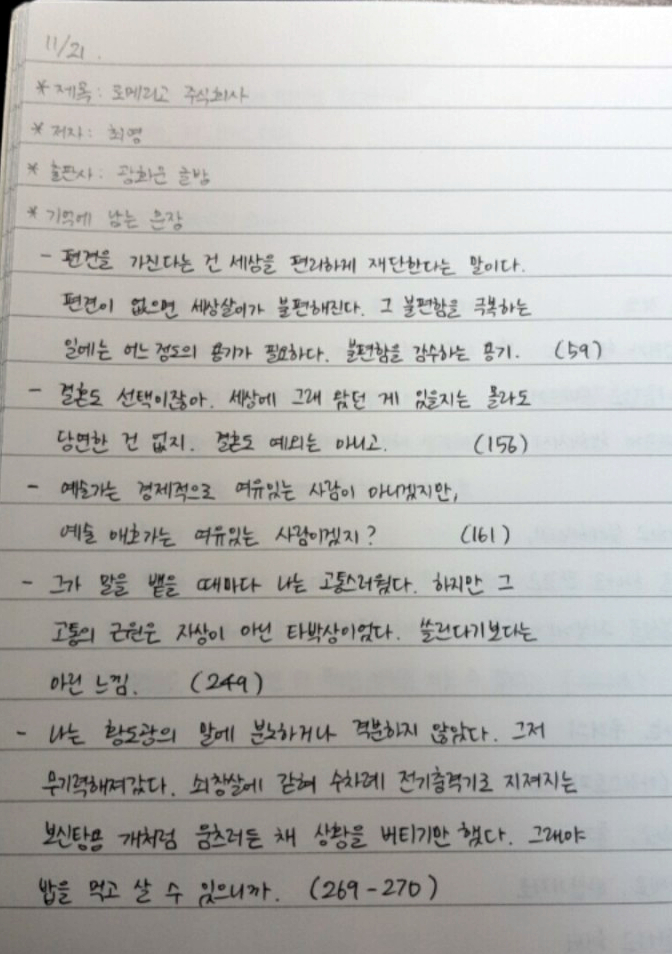 11/21.
* 제목: 로메리고 주식회사
* 저자: 최영
* 출판사: 광화문 글방
* 기억에 남는 문장
- 편견을 가진다는 건 세상을 편리하게 재단한다는 말이다.
편견이 없으면 세상살이가 불편해진다. 그 불편함을 극복하는
일에는 어느 정도의 용기가 필요하다. 불편함을 감수하는 용기. (59)
- 결혼도 선택이잖아. 세상에 그래 왔던 게 있을지는 몰라도
당연한 건 없지. 결혼도 예외는 아니고. (156)
- 예술가는 경제적으로 여유있는 사람이 아니겠지만,
예술 애호가는 여유있는 사람이겠지? (161)
- 그가 말을 뱉을 때마다 나는 고통스러웠다. 하지만 그
고통의 근원은 자상이 아닌 타박상이었다. 쓸린다기보다는
아린 느낌. (249)
- 나는 황도광의 말에 분노하거나 격분하지 않았다. 그저
무기력해져갔다. 쇠창살에 갇혀 수차례 전기충격기로 지져지는
보신탕용 개처럼 움츠러든 채 상황을 버티기만 했다. 그래야
밥을 먹고 살 수 있으니까. (269-270)